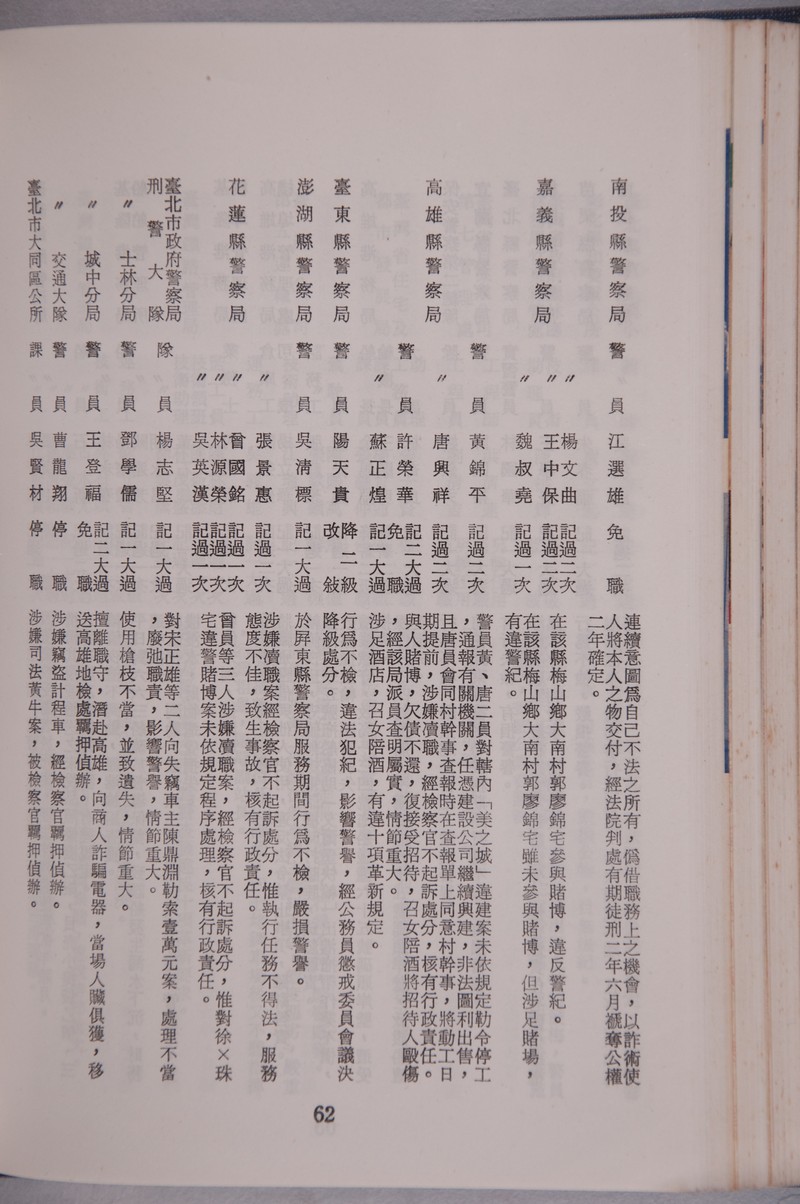 南投縣警察局　警　員　江選雄　免　職　連續意圖為自己不法之所有，偽借職務上之機會，以詐術使
人將本人之物交付，經法院判處有期徒刑二年六月褫奪公權
二年確定。
嘉義縣警察局　〃　楊文曲　記過二次
〃　王中保　記過二次　在該縣梅山鄉大南村郭廖錦宅參與賭博，違反警紀。
〃　魏叔堯　記過一次　在該縣梅山鄉大南村郭廖錦宅雖未參與賭博，但涉足賭場，
有違警紀。
高雄縣警察局　警　員　黃錦平　記過二次　警員黃、唐二員對轄內「美之城」違建案未依規定勒令停工
，通報有關機關，任憑建設公司繼續興建，非法圖利出售，
〃　唐興祥　記過二次　且唐員會同村幹事查報時在查報單上同意村幹事，將動工日
期提前，涉嫌瀆職，經檢察官不起訴處分，核有行政責任。
警　員　許榮華　記二大過　免　職　與人賭博，欠債不還，復接受招待，召女陪酒將招待人毆傷
，經該局派員查明屬實，情節重大。
〃　蘇正煌　記一大過　涉足酒店，召女陪酒，有違十項革新規定。
臺東縣警察局　警　員　陽天貴　降二級　改　敍　行為不檢，違法犯紀，影響警譽，經公務員懲戒委員會議決
降級處分。
澎湖縣警察局　警　員　吳清標　記一大過　於屏東縣警察局服務期間行為不檢，嚴損警譽。
花蓮縣警察局　〃　張景惠　記過一次　涉嫌瀆職案經檢察官不起訴處分，惟執行任務不得法，服務
態度不佳，致生事故，核有行政責任。
〃　曾國銘　記過一次　曾員等三人涉嫌瀆職案，經檢察官不起訴處分，惟對徐×珠
〃　林源榮　記過一次　宅違警賭博案未依規定程序處理，核有行政責任。
〃　吳英漢　記過一次
臺北市政府警察局
刑警大隊　隊　員　楊志堅　記一大過　對宋正雄等二人向失竊車主陳鼎淵勒索壹萬元案，處理不當
，廢弛職責，影響警譽，情節重大。
〃　士林分局　警　員　鄧學儒　記一大過　使用槍枝不當，並致遺失，情節重大。
〃　城中分局　警　員　王登福　記二大過　免　職　擅離職守，潛赴高雄，向商人詐騙電器，當場人贓俱獲，移
送高雄地檢處羈押偵辦。
〃　交通大隊　警　員　曹龍翔　停　職　涉嫌竊盜計程車，經檢察官羈押偵辦。
臺北市大同區公所　課　員　吳賢材　停　職　涉嫌司法黃牛案，被檢察官羈押偵辦。
62